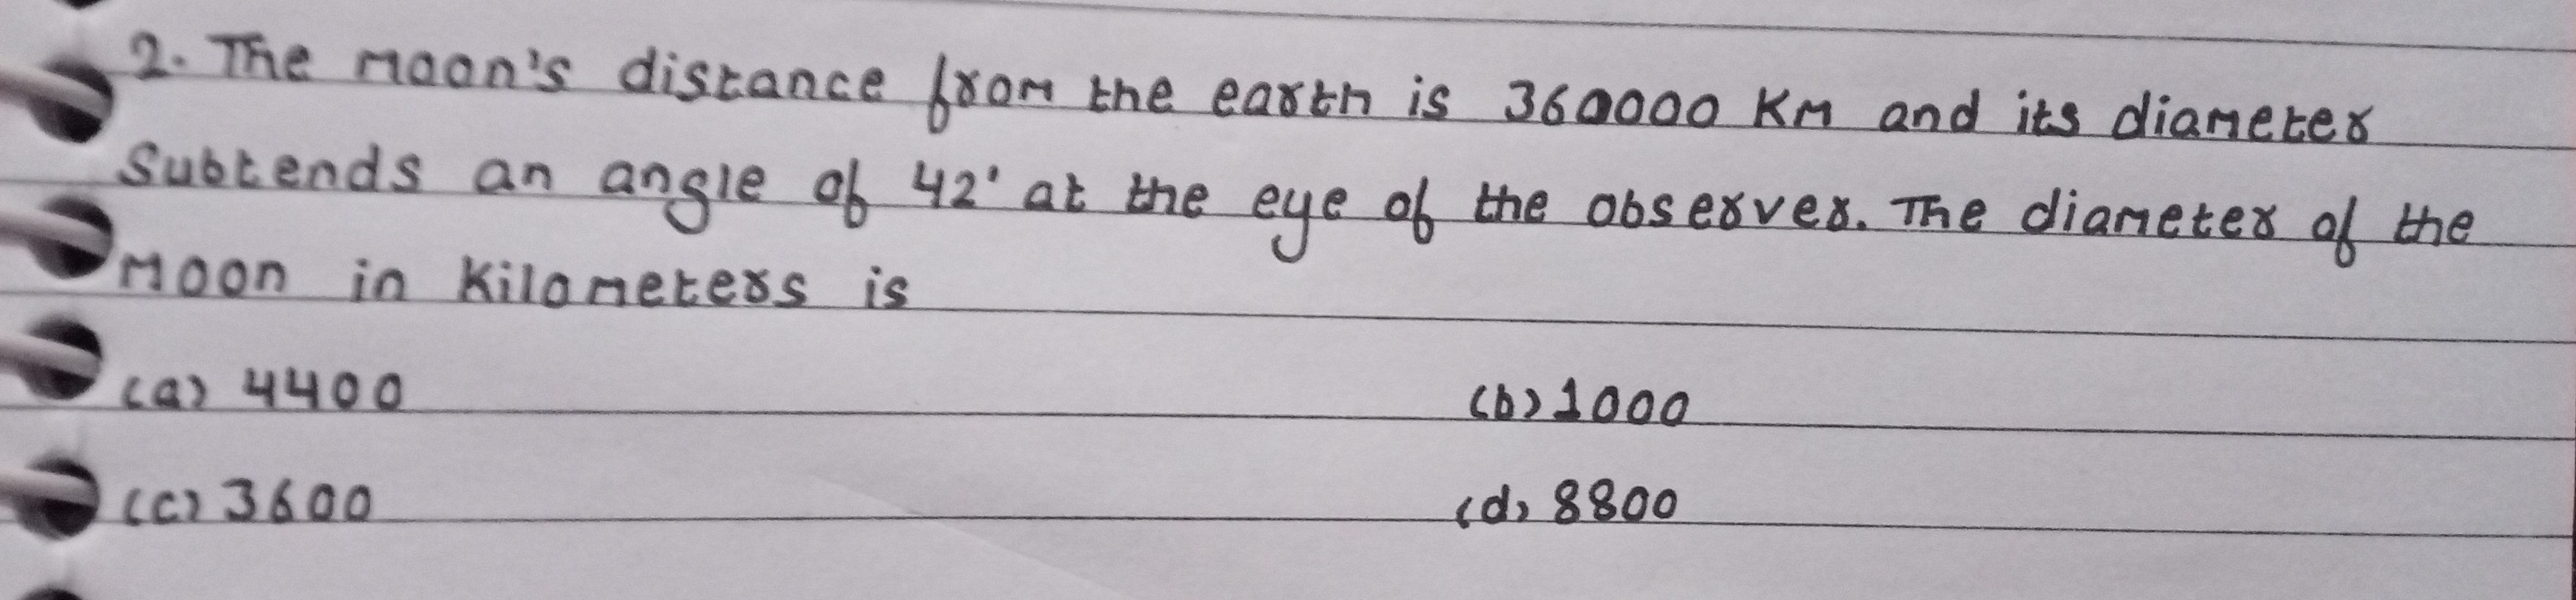 2. The Moon's distance from the earth is 360000 KM and its diameter
Subtends an angle of 42' at the eye of the observer. The diameter of the
Moon in Kilometers is
(a) 4400 (b) 1000
(c) 3600 (d) 8800